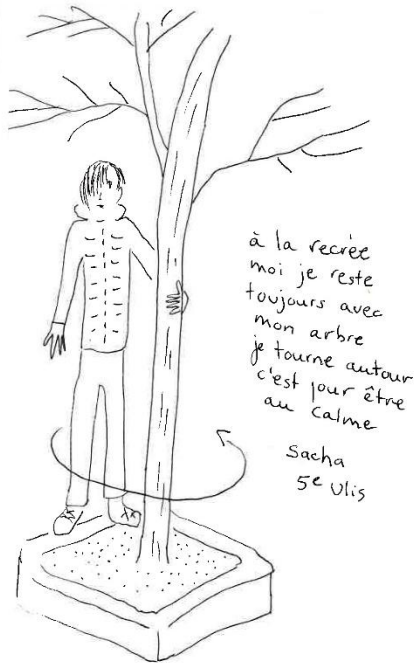 à la recrée
moi je reste
toujours avec
mon arbre
je tourne autour
c'est pour être
au calme
Sacha
5e Ulis